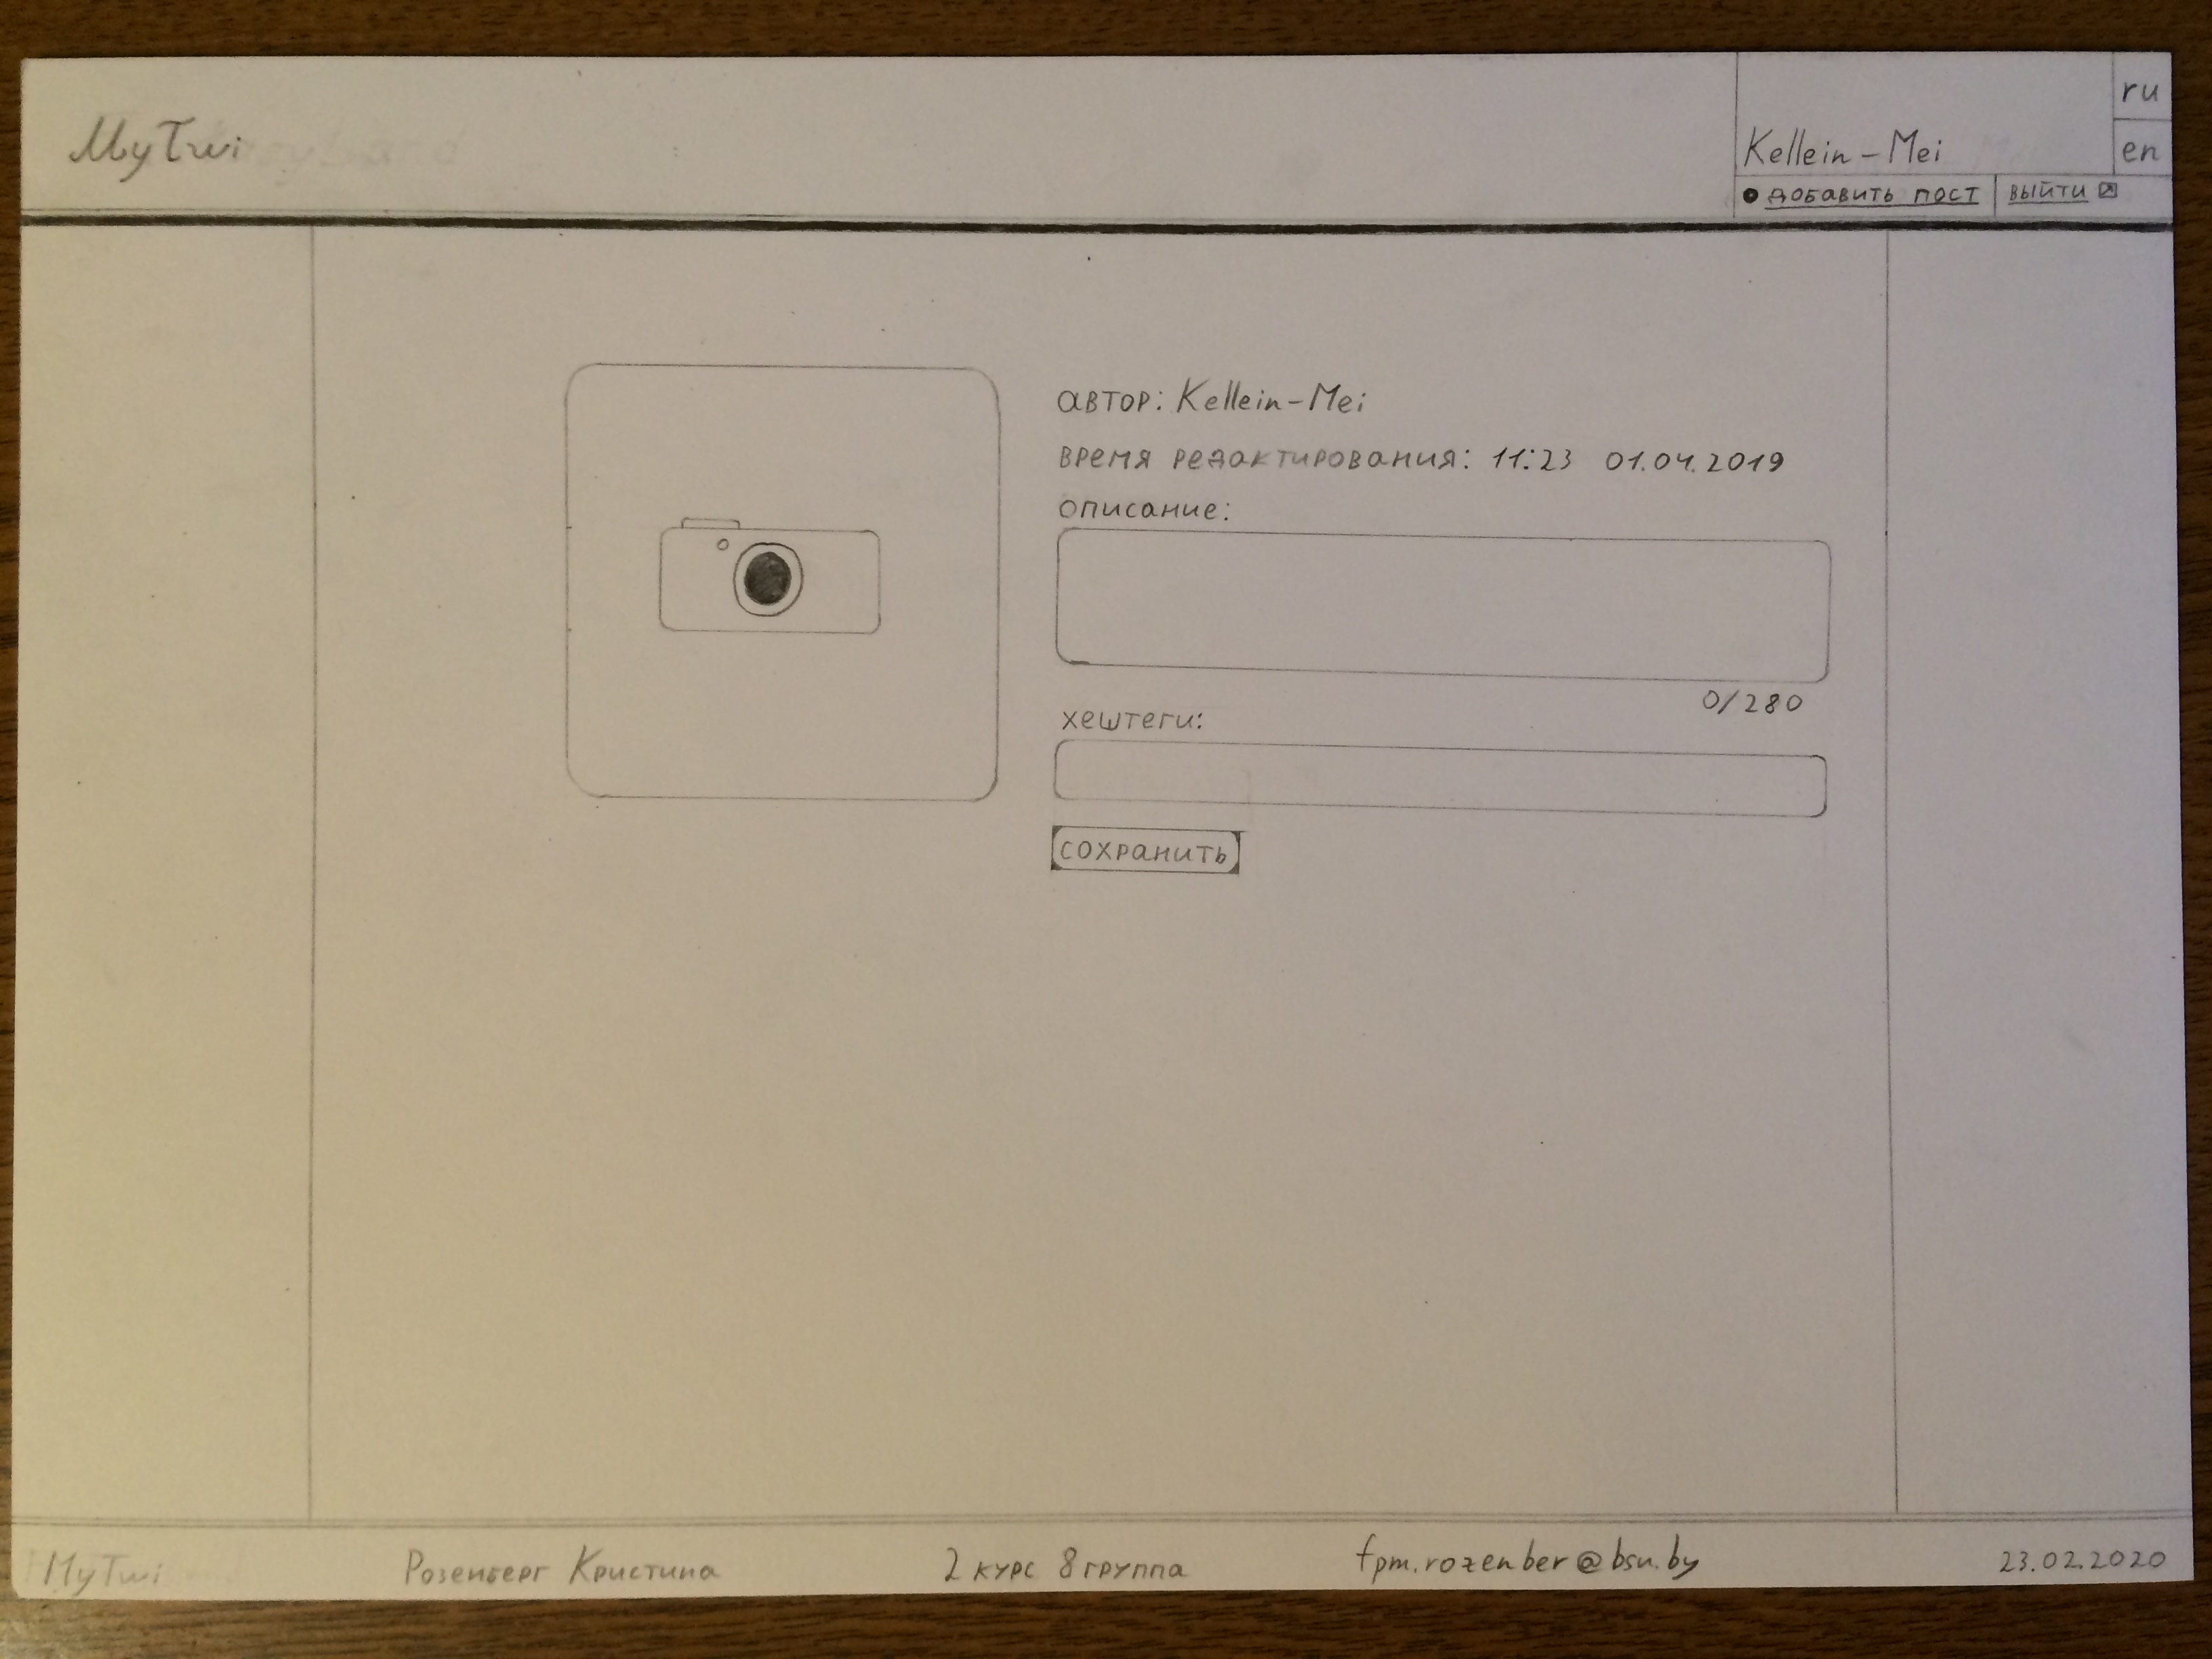 MyTwi
ru
en
Kellein-Mei
добавить пост
выйти
автор: Kellein-Mei
время редактирования: 11:23 01.04.2019
описание:
0/280
хештеги:
сохранить
MyTwi
Розенберг Кристина
2 курс 8 группа
fpm.rozenber@bsu.by
23.02.2020